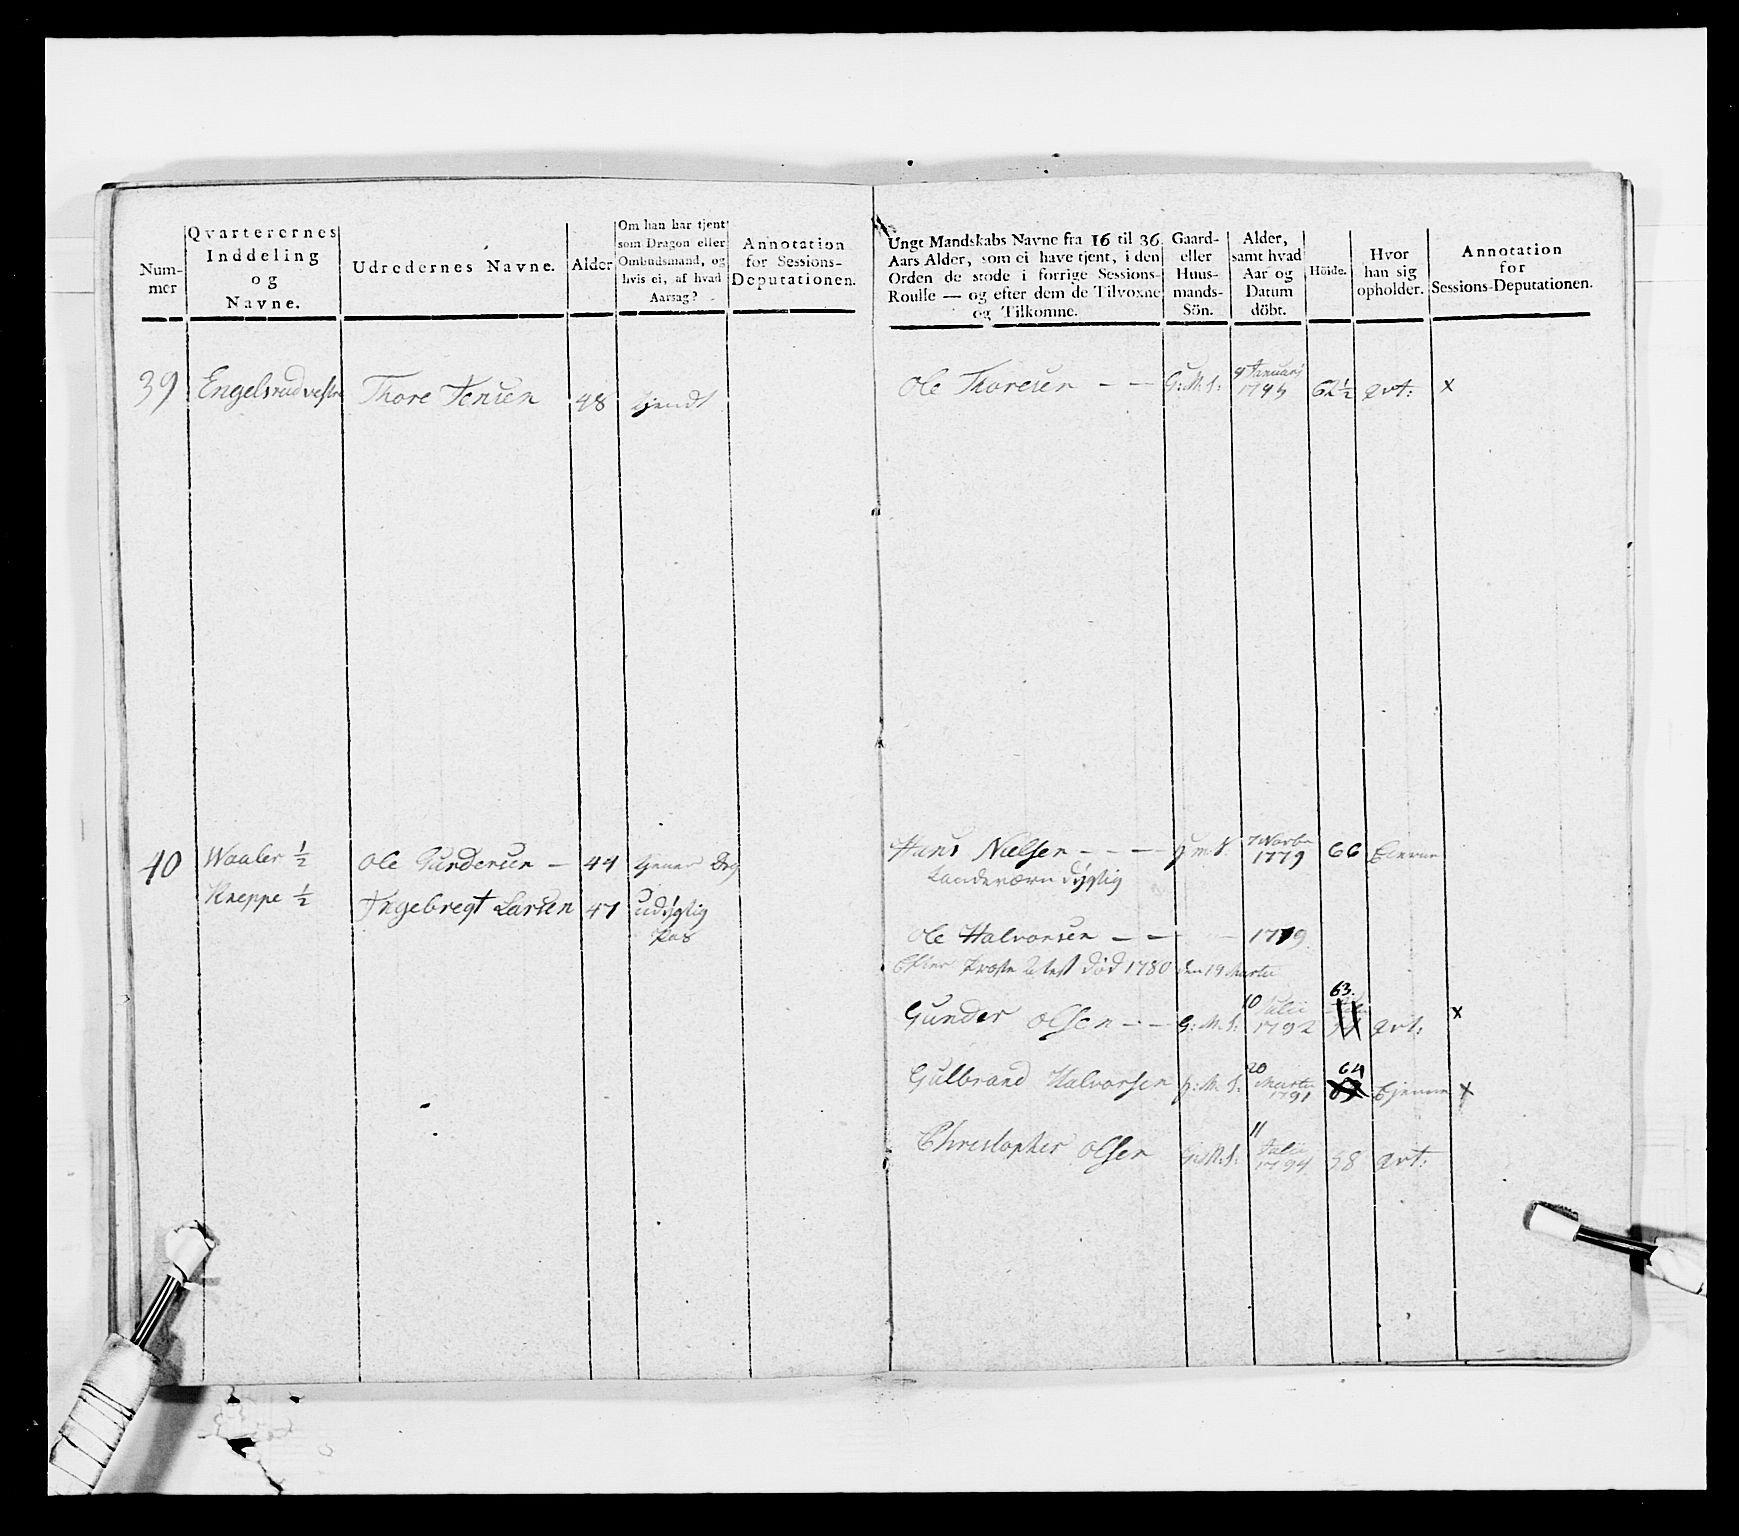 Num-
mer
Qvarterernes
Inddeling
og
Navne.
Udredernes Navne.
Alder
Om han har tjent
som Dragon eller
Ombudsmand, og
hvis ei, af hvad
Aarsag?
Annotation
for Sessions-
Deputationen.
Ungt Mandskabs Navne fra 16 til 36
Aars Alder, som ei have tjent, i den
Orden de stode i forrige Sessions-
Roulle — og efter dem de Tilvoxne
og Tilkomne.
Gaard-
eller
Huus-
mands-
Sön.
Alder,
samt hvad
Aar og
Datum
döbt.
Höide.
Hvor
han sig
opholder.
Annotation
for
Sessions-Deputationen.
39 Engelsrud vestre Thore Jensen 48 tjendt
Ole Thoresen — — G: M: S: 9 Januarj 1795 62½ qvt: x
40 Waaler ½ Ole Gundersen — 44
Kneppe ½ Ingebregt Larsen 47 udygtig
Pas
Hans Nielsen - - - - 1779 66
Landeværn dygtig
Ole Halvorsen — — 1779
Efter Præste død 1780 den 19 Martii
Gunder Olsen - - G: M: S: 10 Julii 1792 63. qvt: x
Gulbrand Halvorsen G: M: S: 20 Martii 1791 64 tjenne x
Christopher Olsen G: M: S: 11 Julii 1794 58 qvt: